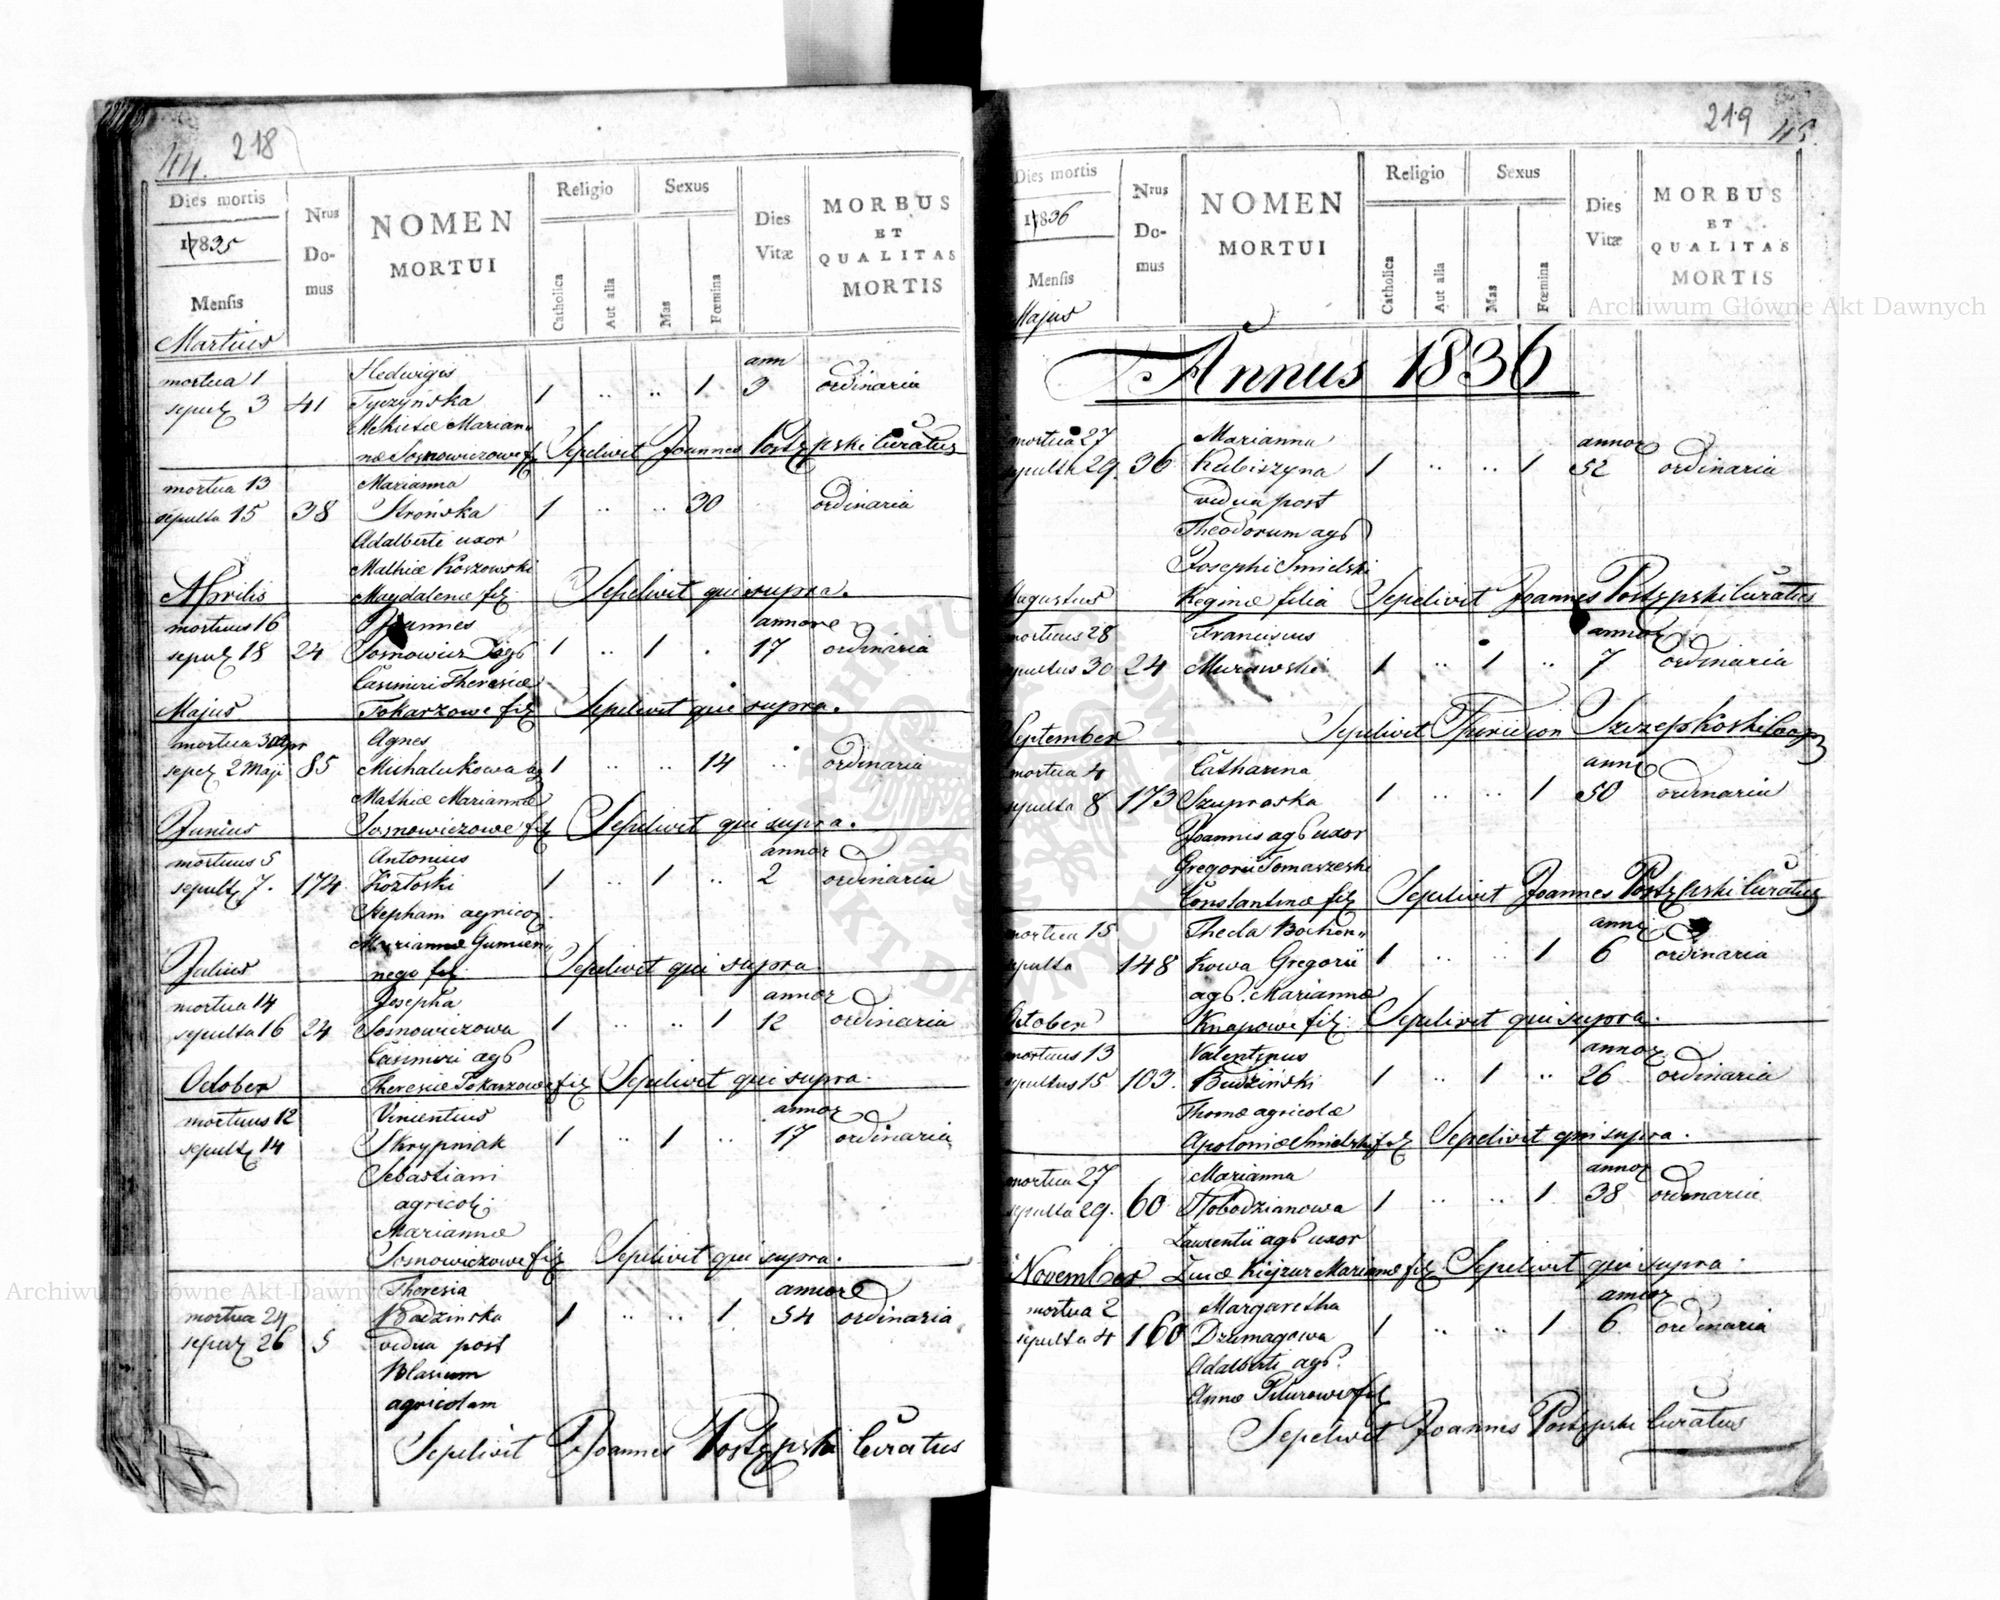 218
Dies mortis
1835
Mensis
Martius
Nrus
Do-
mus
NOMEN
MORTUI
Religio
Catholica
Aut alia
Sexus
Mas
Fœmina
Dies
Vitæ
MORBUS
ET
QUALITAS
MORTIS
ann
mortua 1 Hedwigis
sepult 3 41 Tyrzynska 1 .. .. 1 3 ordinaria
Marian
næ Sosnowiczowe fil Sepelivit Joannes Postępski Curatus
mortua 13 Marianna
sepulta 15 38 Strońska 1 30 ordinaria
Adalberti uxor
Mathiæ Koszowski
Aprilis Magdalenæ fil. Sepelivit qui supra.
mortuus 16 Joannes annor
sepul 18 24 Sosnowicz 1 .. 1 . 17 ordinaria
Casimiri Theresiæ
Majus Tokarzowe fil Sepelivit qui supra.
mortua 30 Apr Agnes
sepel 2 Maji 85 Michalukowa ag 1 .. .. 14 .. ordinaria
Mathiæ Mariannæ
Junius Sosnowiczowe fil Sepelivit qui supra.
mortuus 5 Antonius annor
sepult 7. 174 Kozłoski 1 .. 1 .. 2 ordinaria
Stephani agricol.
Mariannæ Gumien
Julius nego fil. Sepelivit qui supra
mortua 14 Josepha annor
sepulta 16 24 Sosnowiczowa 1 .. .. 1 12 ordinaria
Casimiri agr
October Theresiæ Tokarzowe fil Sepelivit qui supra.
mortuus 12 Vincentius annor
sepult 14 Skrypniak 1 .. 1 .. 17 ordinaria
Sebastiani
agricol.
Mariannæ
Sosnowiczowe fil Sepelivit qui supra.
Theresia annor
mortua 24 Badzinska 1 .. .. 1 54 ordinaria
sepul 26 5 vidua post
Blasium
agricolam
Sepelivit Joannes Postępski Curatus
219
45.
Dies mortis
1836
Mensis
Majus
Nrus
Do-
mus
NOMEN
MORTUI
Religio
Catholica
Aut alia
Sexus
Mas
Fœmina
Dies
Vitæ
MORBUS
ET
QUALITAS
MORTIS
Annus 1836
mortua 27 Marianna annor
sepulta 29. 36 Kubiszyna 1 .. .. 1 52 ordinaria
vidua post
Theodorum agr
Josephi Smielski
Augustus Reginæ filia Sepelivit Joannes Postępski Curatus
mortuus 28 Franciscus annor
sepultus 30 24 Murawski 1 .. 1 .. 7 ordinaria
September Sepelivit Spiridion Szczepkoski
mortua 4 Catharina anno
sepulta 8 173 Szuproska 1 .. .. 1 50 ordinaria
Joannis agr uxor
Gregorii Tomaszeski
Constantinæ fil Sepelivit Joannes Postępski Curatus
mortua 15 Thecla Bochen„ anno
sepulta 148 kowa Gregorii 1 .. .. 1 6 ordinaria
agr. Mariannæ
October Knapowe fil. Sepelivit qui supra.
mortuus 13 Valentinus annor
sepultus 15 103. Budziński 1 .. 1 .. 26 ordinaria
Thomæ agricolæ
Apoloniæ Smielski fil Sepelivit qui supra.
mortua 27 Marianna annor
sepulta 29. 60 Hobodzianowa 1 .. .. 1. 38 ordinaria
Laurentii agr uxor
November Lucæ Kiejzur Mariannæ fil Sepelivit qui supra.
mortua 2 Margaretha annor
sepulta 4 160 Drzmagowa 1 .. .. 1 6 ordinaria
Adalberti agr.
Annæ Piturowe fil
Sepelivit Joannes Postępski Curatus
Archiwum Główne Akt Dawnych
Archiwum Główne Akt Dawnych
ARCHIWUM GŁÓWNE AKT DAWNYCH